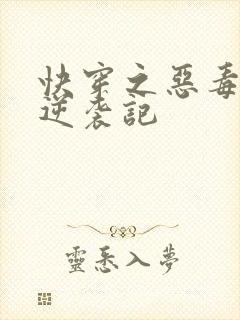 快穿之惡毒
逆袭記
靈悉入夢